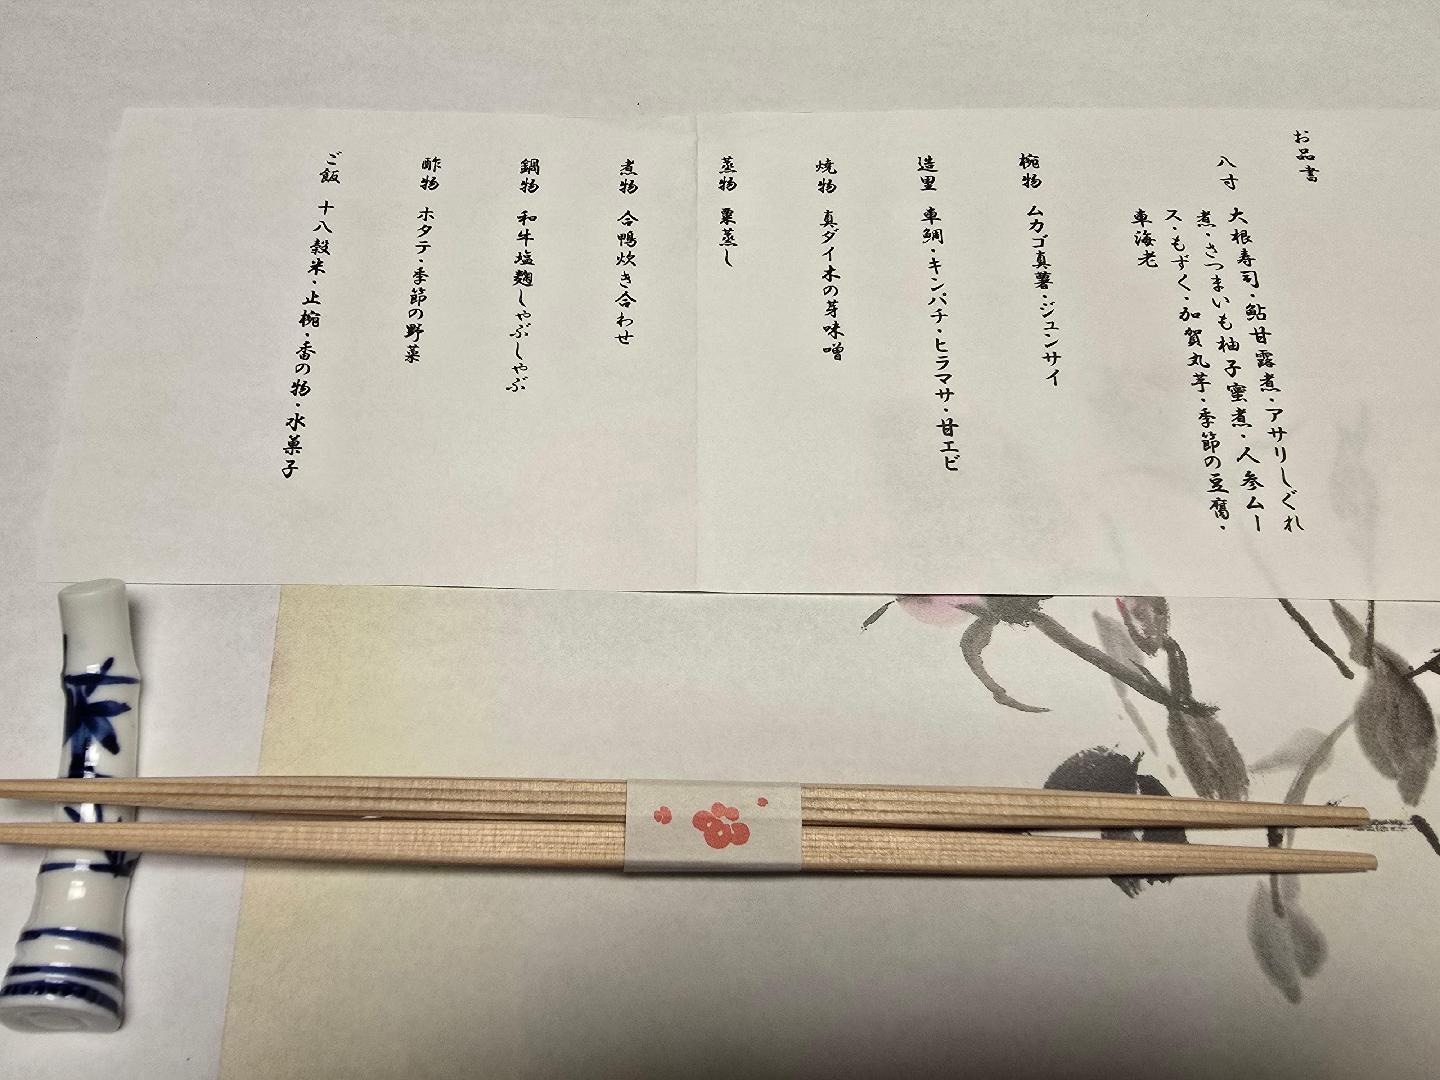 お品書
八寸 大根寿司・鮎甘露煮・アサリしぐれ
煮・さつまいも柚子蜜煮・人参ムー
ス・もずく・加賀丸芋・季節の豆腐・
車海老
椀物 ムカゴ真薯・ジュンサイ
造里 車鯛・キンパチ・ヒラマサ・甘エビ
焼物 真ダイ木の芽味噌
蒸物 粟蒸し
煮物 合鴨炊き合わせ
鍋物 和牛塩麹しゃぶしゃぶ
酢物 ホタテ・季節の野菜
ご飯 十八穀米・止椀・香の物・水菓子